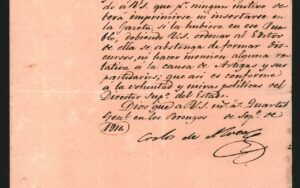 do a V.S. que pr. ningun motivo de-
bera imprimirse ni insertarse en
la Gazeta, si la hubiere en ese Pue-
blo, debiendo V.S. ordenar al Editor
de ella se abstenga de formar Dis-
cursos, ni hacer mencion alguna re-
lativa a la causa de Artigas y sus
partidarios; que asi es conforme
a la voluntad y miras politicas del
Director Supo. del Estado.
Dios gue a V.S. ms. as. Quartel
Genl. en los de Sepe. de
1814.
Carlos de